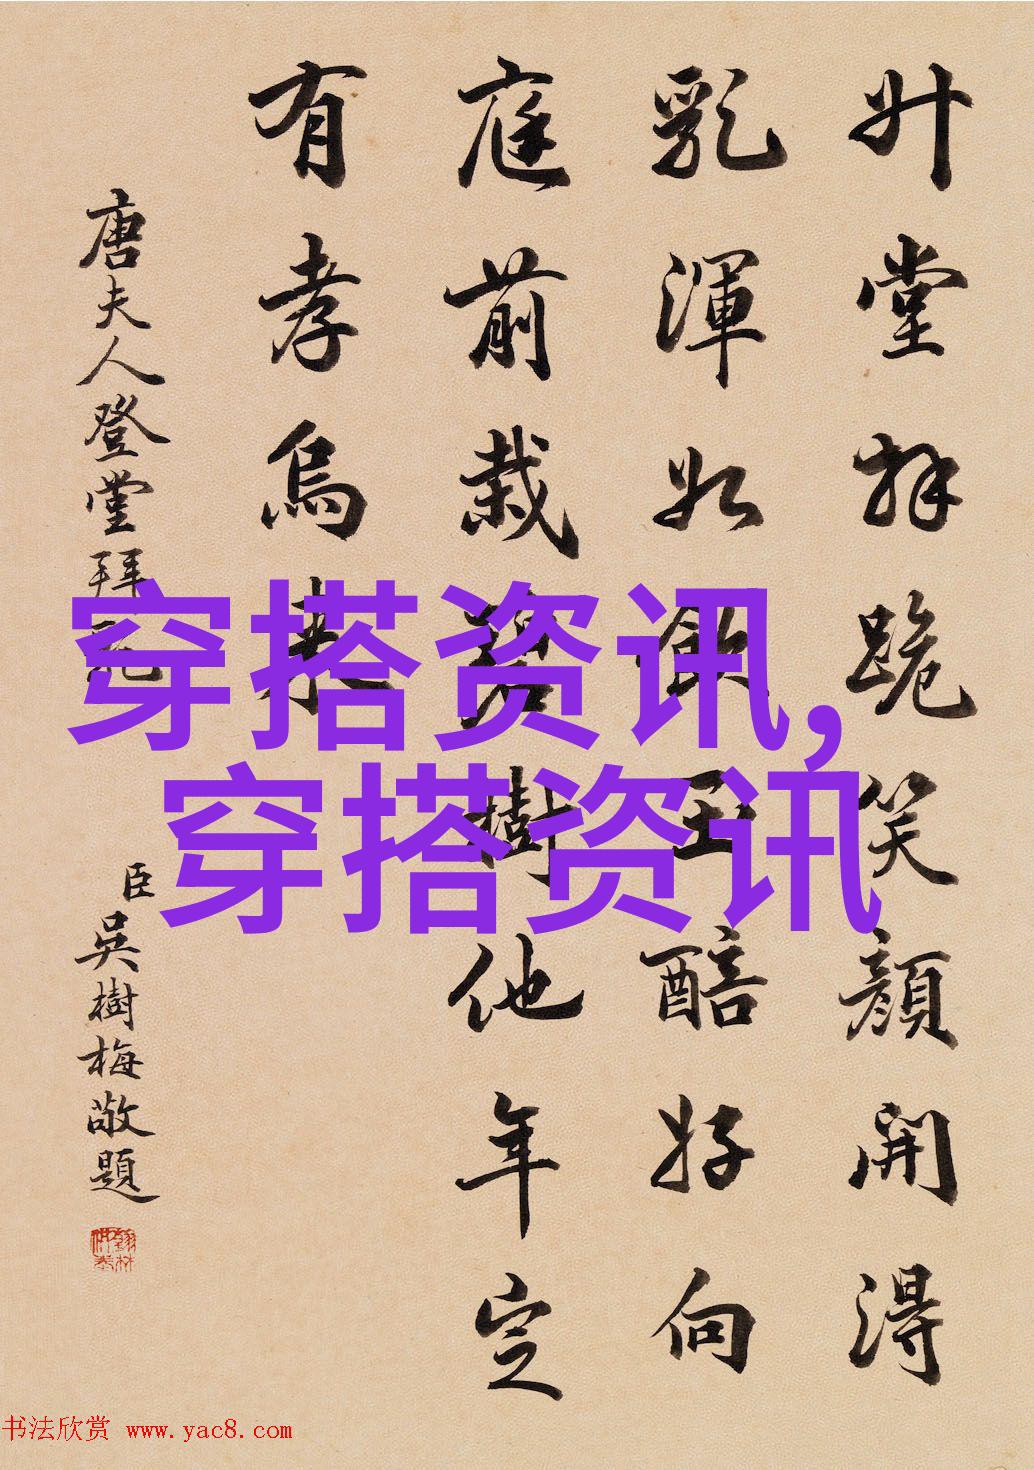 升堂拜跪笑顔開得
乳渾如飲玉醅好向
庭前栽碧樹他年定
有孝烏來
唐夫人登堂拜乳
臣吳樹梅敬題
穿搭资讯,
穿搭资讯
书法欣赏 www.yac8.com